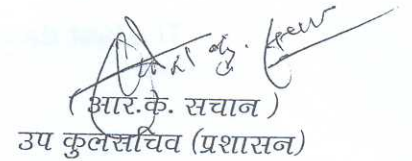 ( आर.के. सचान )
उप कुलसचिव (प्रशासन)